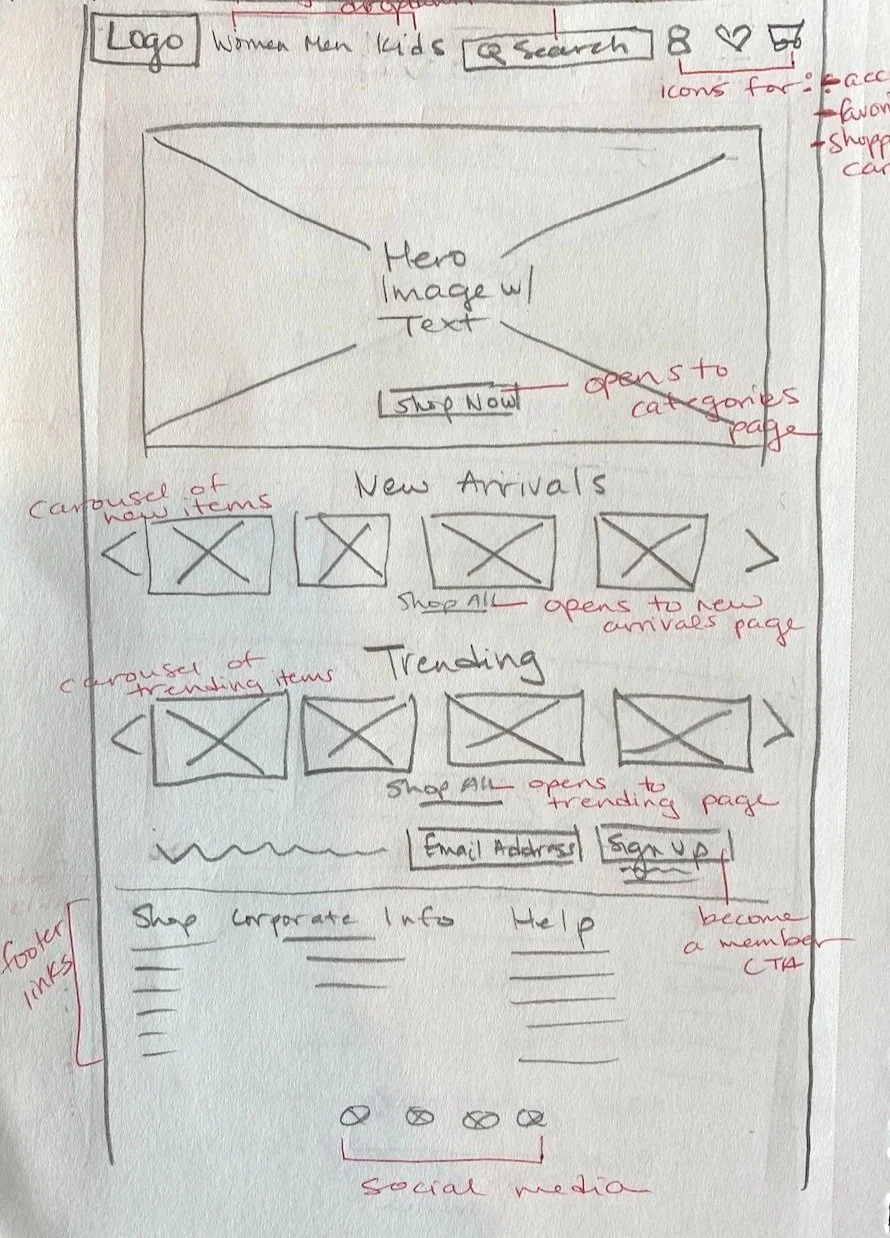 Logo
Women Men Kids
Search
icons for:
Hero
Image w/
Text
Shop Now
opens to
categories
page
New Arrivals
carousel of
new items
Shop All
opens to new
arrivals page
Trending
carousel of
trending items
Shop All
opens to
trending page
Email Address
Sign Up
become
a member
CTA
footer
links
Shop
Corporate Info
Help
social media